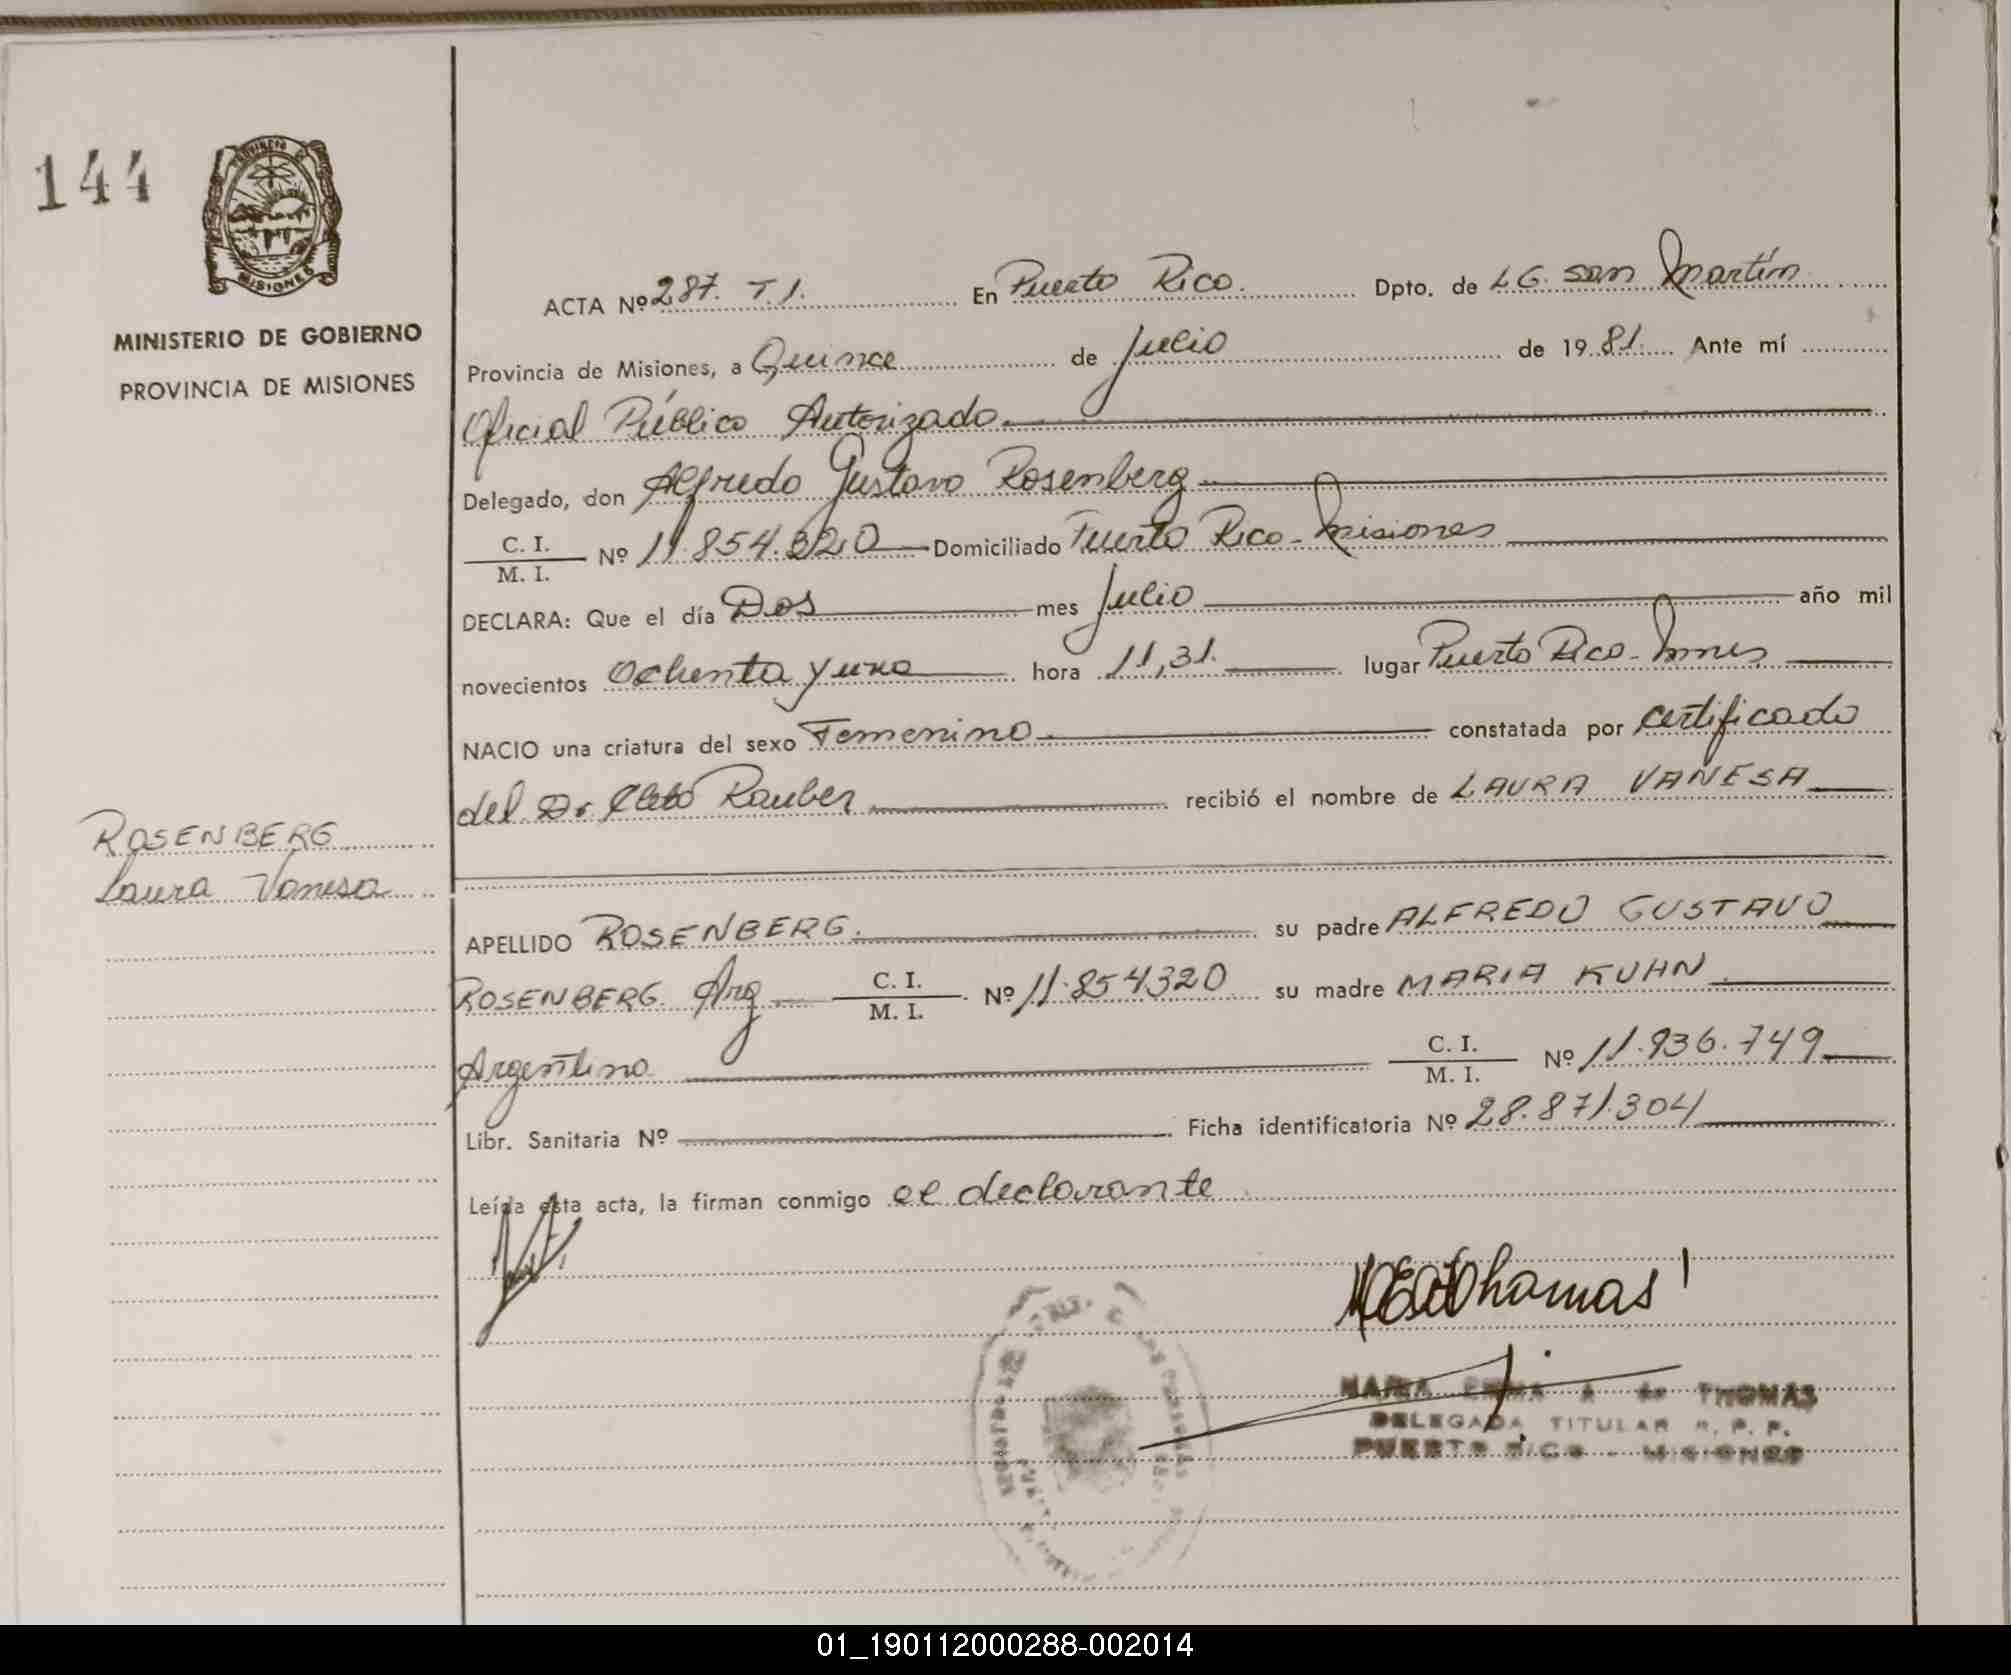 144
PROVINCIA DE
MISIONES
MINISTERIO DE GOBIERNO
PROVINCIA DE MISIONES
ACTA Nº 287. T.I. En Puerto Rico. Dpto. de L.G. San Martín
Provincia de Misiones, a Quince de Julio de 1981. Ante mí
Oficial Público Autorizado
Delegado, don Alfredo Gustavo Rosenberg
C. I.
M. I. Nº 11.854.320 Domiciliado Puerto Rico - Misiones
DECLARA: Que el día Dos mes Julio año mil
novecientos Ochenta y uno hora 11,31. lugar Puerto Rico - Mnes
NACIO una criatura del sexo Femenino constatada por certificado
del Dr. Cleto Rauber recibió el nombre de LAURA VANESA
ROSENBERG
Laura Vanesa
APELLIDO ROSENBERG. su padre ALFREDO GUSTAVO
ROSENBERG. Arg C. I.
M. I. Nº 11.854320 su madre MARIA KUHN
Argentina C. I.
M. I. Nº 11.936.749
Libr. Sanitaria Nº Ficha identificatoria Nº 28.871.304
Leída esta acta, la firman conmigo el declarante
Thomas
MARIA EMMA A de THOMAS
DELEGADA TITULAR R. P. P.
PUERTO RICO - MISIONES
01_190112000288-002014